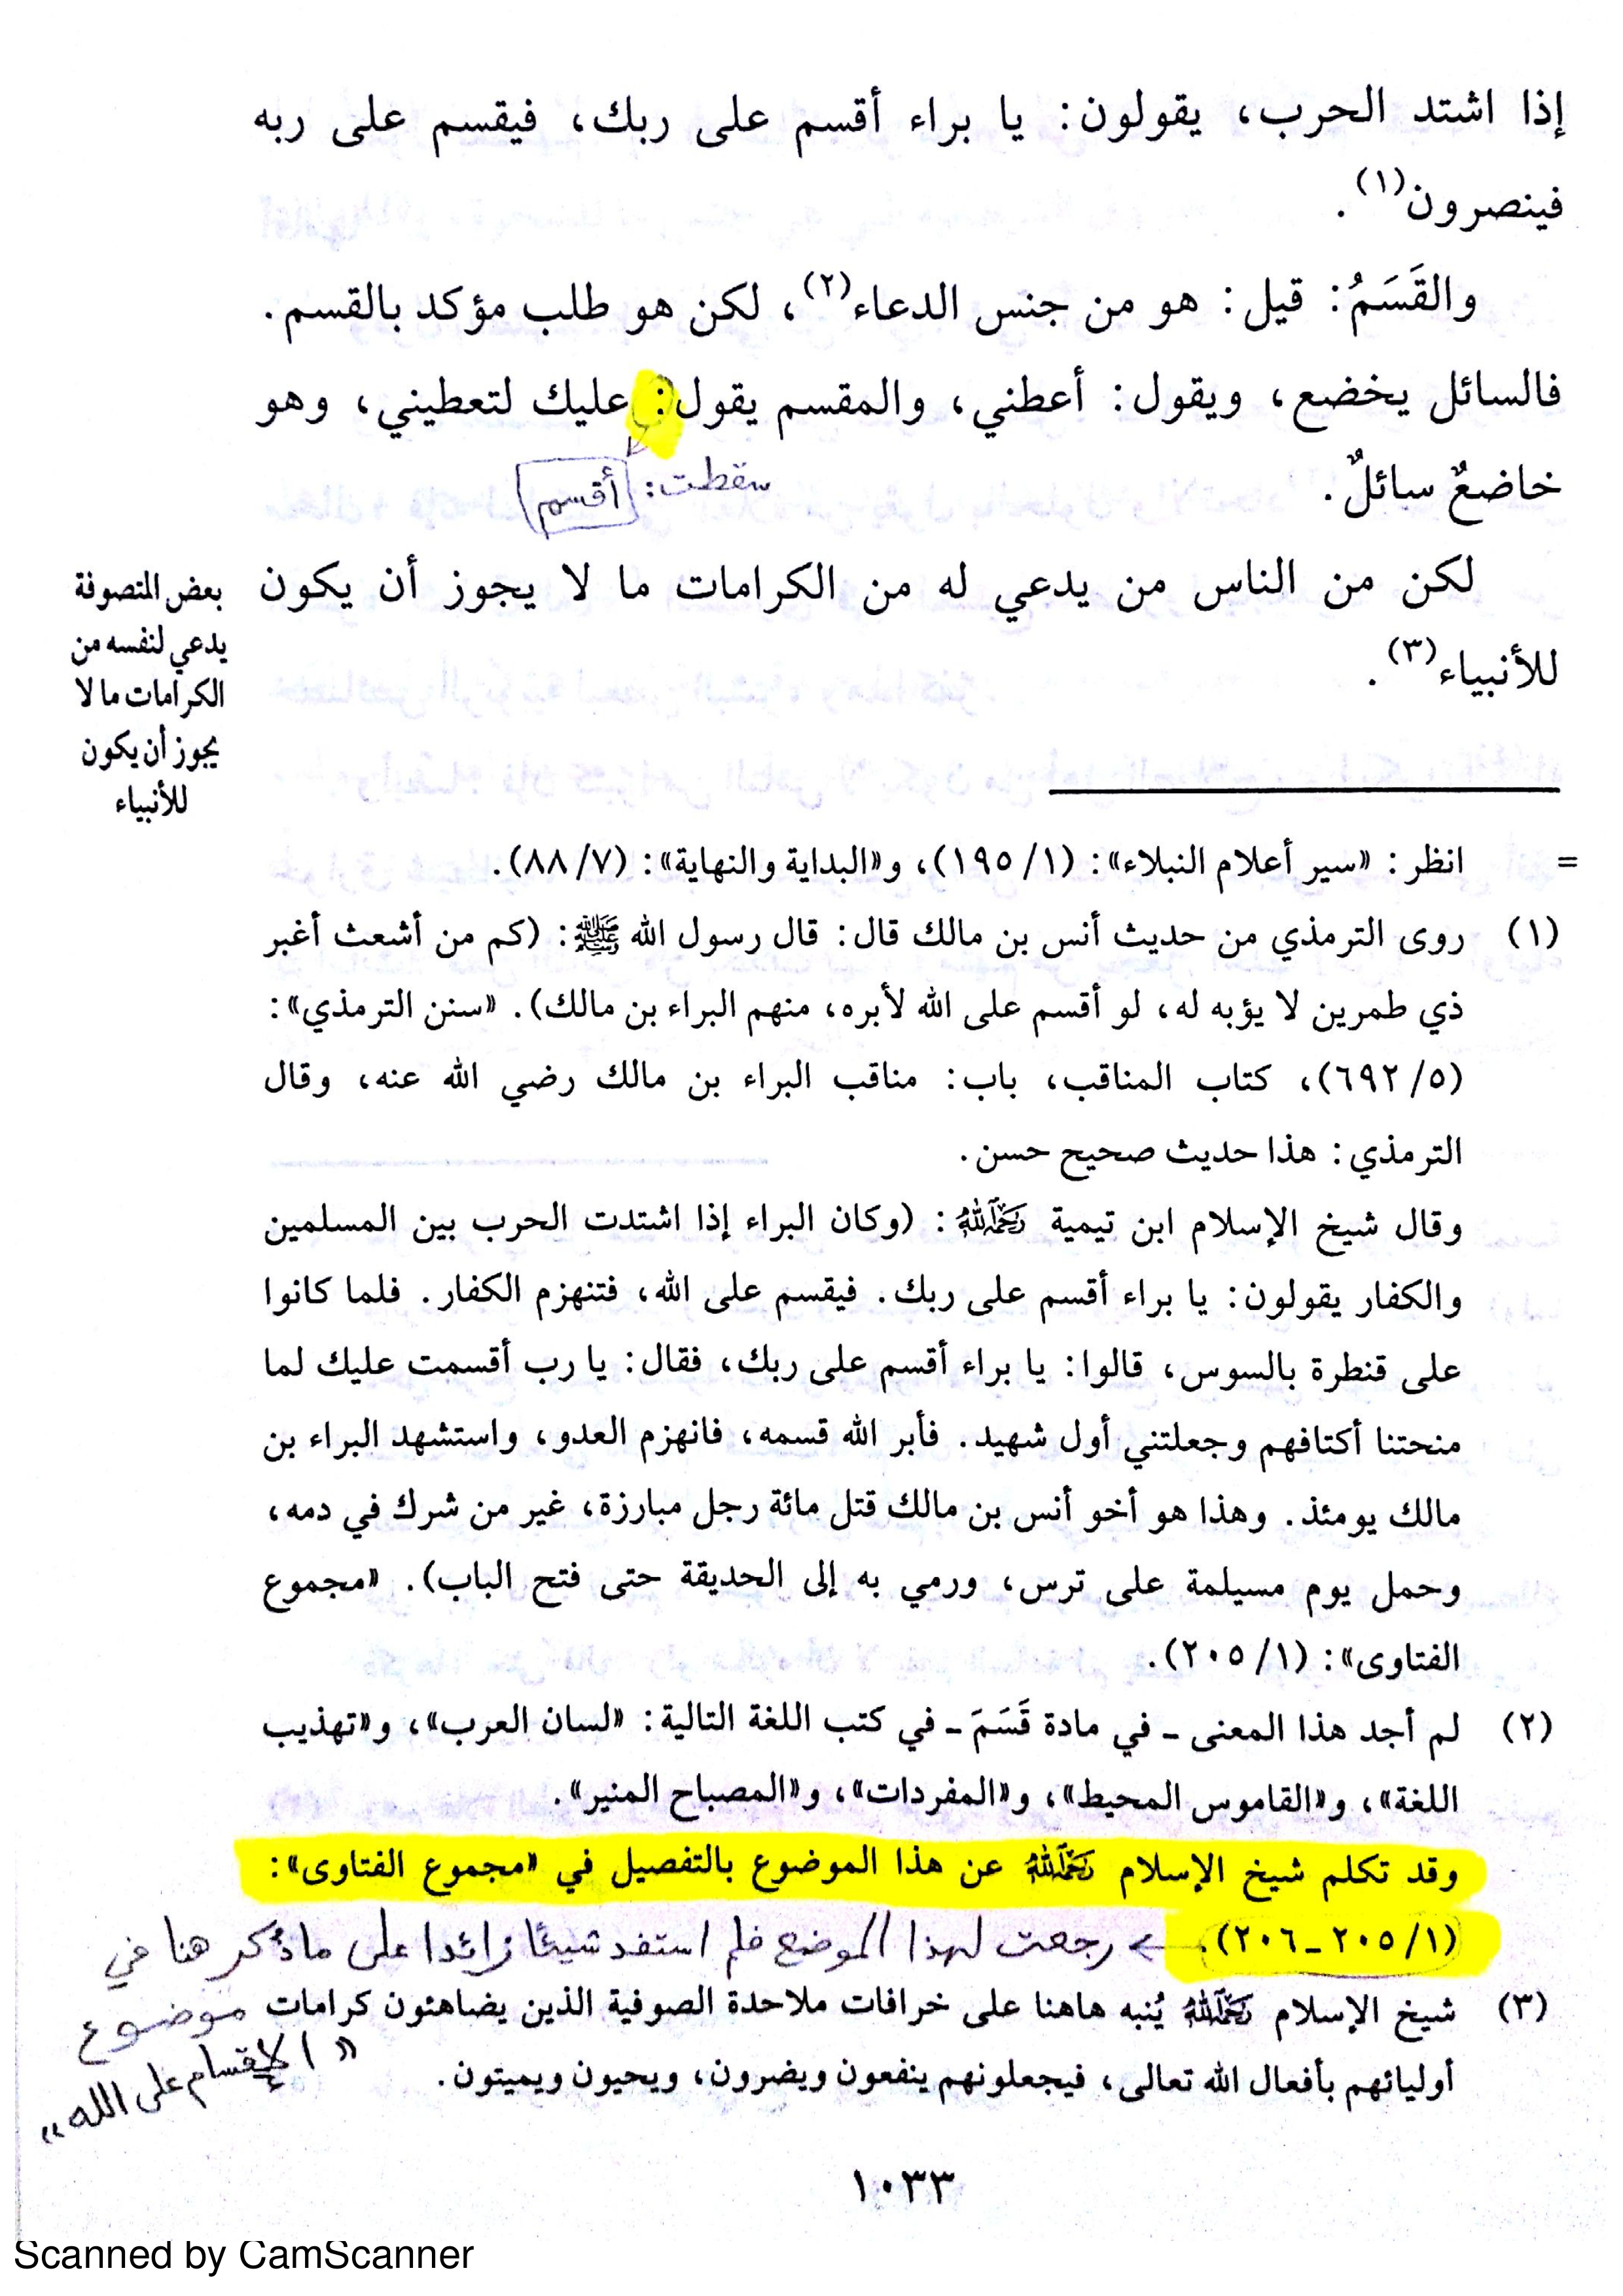 إذا اشتد الحرب، يقولون: يا براء أقسم على ربك، فيقسم على ربه
فينصرون(١).
والقَسَمُ: قيل: هو من جنس الدعاء(٢)، لكن هو طلب مؤكد بالقسم.
فالسائل يخضع، ويقول: أعطني، والمقسم يقول: عليك لتعطيني، وهو
خاضعٌ سائلٌ.
سقطت: أقسم
لكن من الناس من يدعي له من الكرامات ما لا يجوز أن يكون
للأنبياء(٣).
بعض المتصوفة
يدعي لنفسه من
الكرامات ما لا
يجوز أن يكون
للأنبياء
= انظر: «سير أعلام النبلاء»: (١/ ١٩٥)، و«البداية والنهاية»: (٧/ ٨٨).
(١) روى الترمذي من حديث أنس بن مالك قال: قال رسول الله ﷺ: (كم من أشعث أغبر
ذي طمرين لا يؤبه له، لو أقسم على الله لأبره، منهم البراء بن مالك). «سنن الترمذي»:
(٥/ ٦٩٢)، كتاب المناقب، باب: مناقب البراء بن مالك رضي الله عنه، وقال
الترمذي: هذا حديث صحيح حسن.
وقال شيخ الإسلام ابن تيمية رحمه الله: (وكان البراء إذا اشتدت الحرب بين المسلمين
والكفار يقولون: يا براء أقسم على ربك. فيقسم على الله، فتنهزم الكفار. فلما كانوا
على قنطرة بالسوس، قالوا: يا براء أقسم على ربك، فقال: يا رب أقسمت عليك لما
منحتنا أكتافهم وجعلتني أول شهيد. فأبر الله قسمه، فانهزم العدو، واستشهد البراء بن
مالك يومئذ. وهذا هو أخو أنس بن مالك قتل مائة رجل مبارزة، غير من شرك في دمه،
وحمل يوم مسيلمة على ترس، ورمي به إلى الحديقة حتى فتح الباب). «مجموع
الفتاوى»: (١/ ٢٠٥).
(٢) لم أجد هذا المعنى ـ في مادة قَسَمَ ـ في كتب اللغة التالية: «لسان العرب»، و«تهذيب
اللغة»، و«القاموس المحيط»، و«المفردات»، و«المصباح المنير».
وقد تكلم شيخ الإسلام رحمه الله عن هذا الموضوع بالتفصيل في «مجموع الفتاوى»:
(١/ ٢٠٥ـ٢٠٦).
رجعت لهذا الموضع فلم استفد شيئا زائدا على ما ذُكر هنا في
موضوع
«الإقسام على الله»
(٣) شيخ الإسلام رحمه الله يُنبه هاهنا على خرافات ملاحدة الصوفية الذين يضاهئون كرامات
أوليائهم بأفعال الله تعالى، فيجعلونهم ينفعون ويضرون، ويحيون ويميتون.
١٠٣٣
Scanned by CamScanner